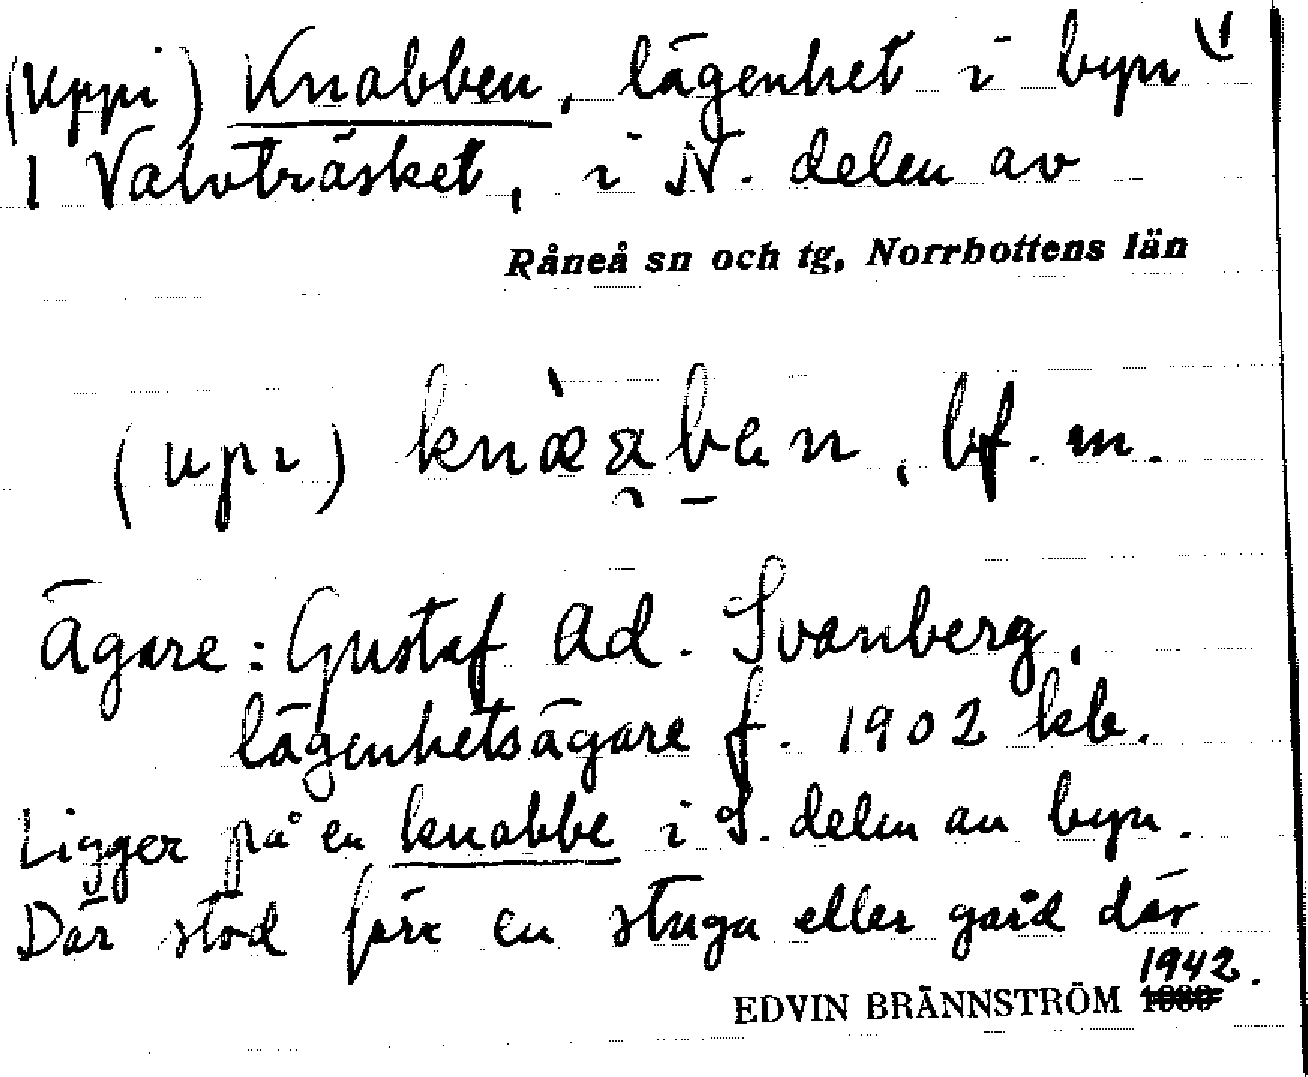 (Uppi) Knabben, lägenhet i byn
1 Valvträsket, i N. delen av
Råneå sn och tg, Norrbottens län
(upi) bf. m.
Ägare: Gustaf Ad. Svanberg,
lägenhetsägare f. 1902 kb.
Ligger på en knabbe i S. delen av byn.
Där stod förr en stuga eller gård där
1942.
EDVIN BRÄNNSTRÖM